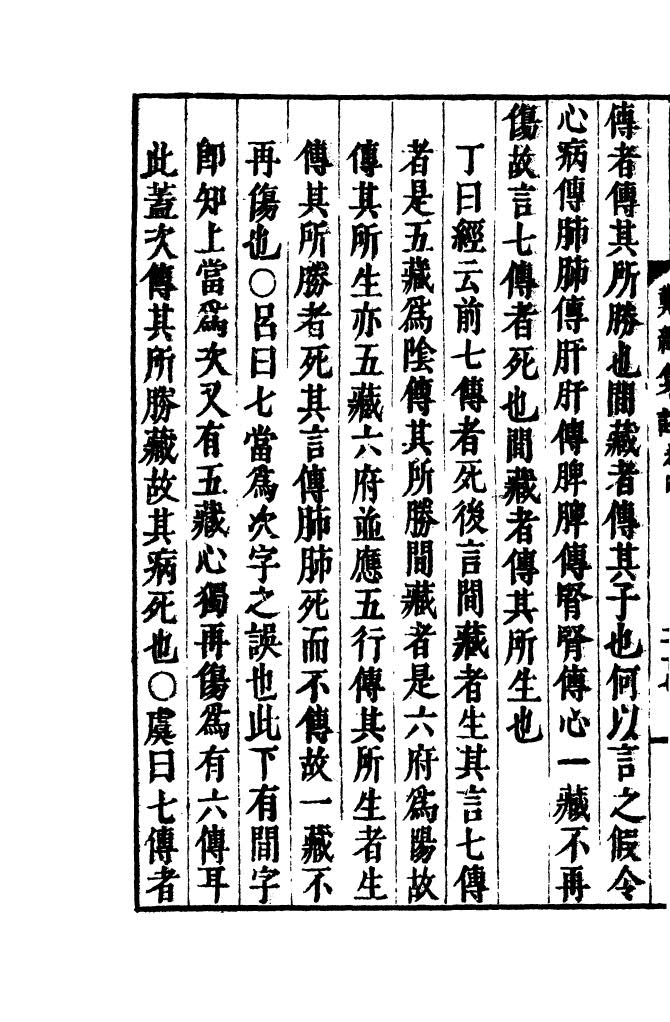 傳者傳其所勝也間藏者傳其子也何以言之假令
心病傳肺肺傳肝肝傳脾脾傳腎腎傳心一藏不再
傷故言七傳者死也間藏者傳其所生也
丁曰經云前七傳者死後言間藏者生其言七傳
者是五藏爲陰傳其所勝間藏者是六府爲陽故
傳其所生亦五藏六府並應五行傳其所生者生
傳其所勝者死其言傳肺肺死而不傳故一藏不
再傷也〇呂曰七當爲次字之誤也此下有間字
卽知上當爲次又有五藏心獨再傷爲有六傳耳
此蓋次傳其所勝藏故其病死也〇虞曰七傳者